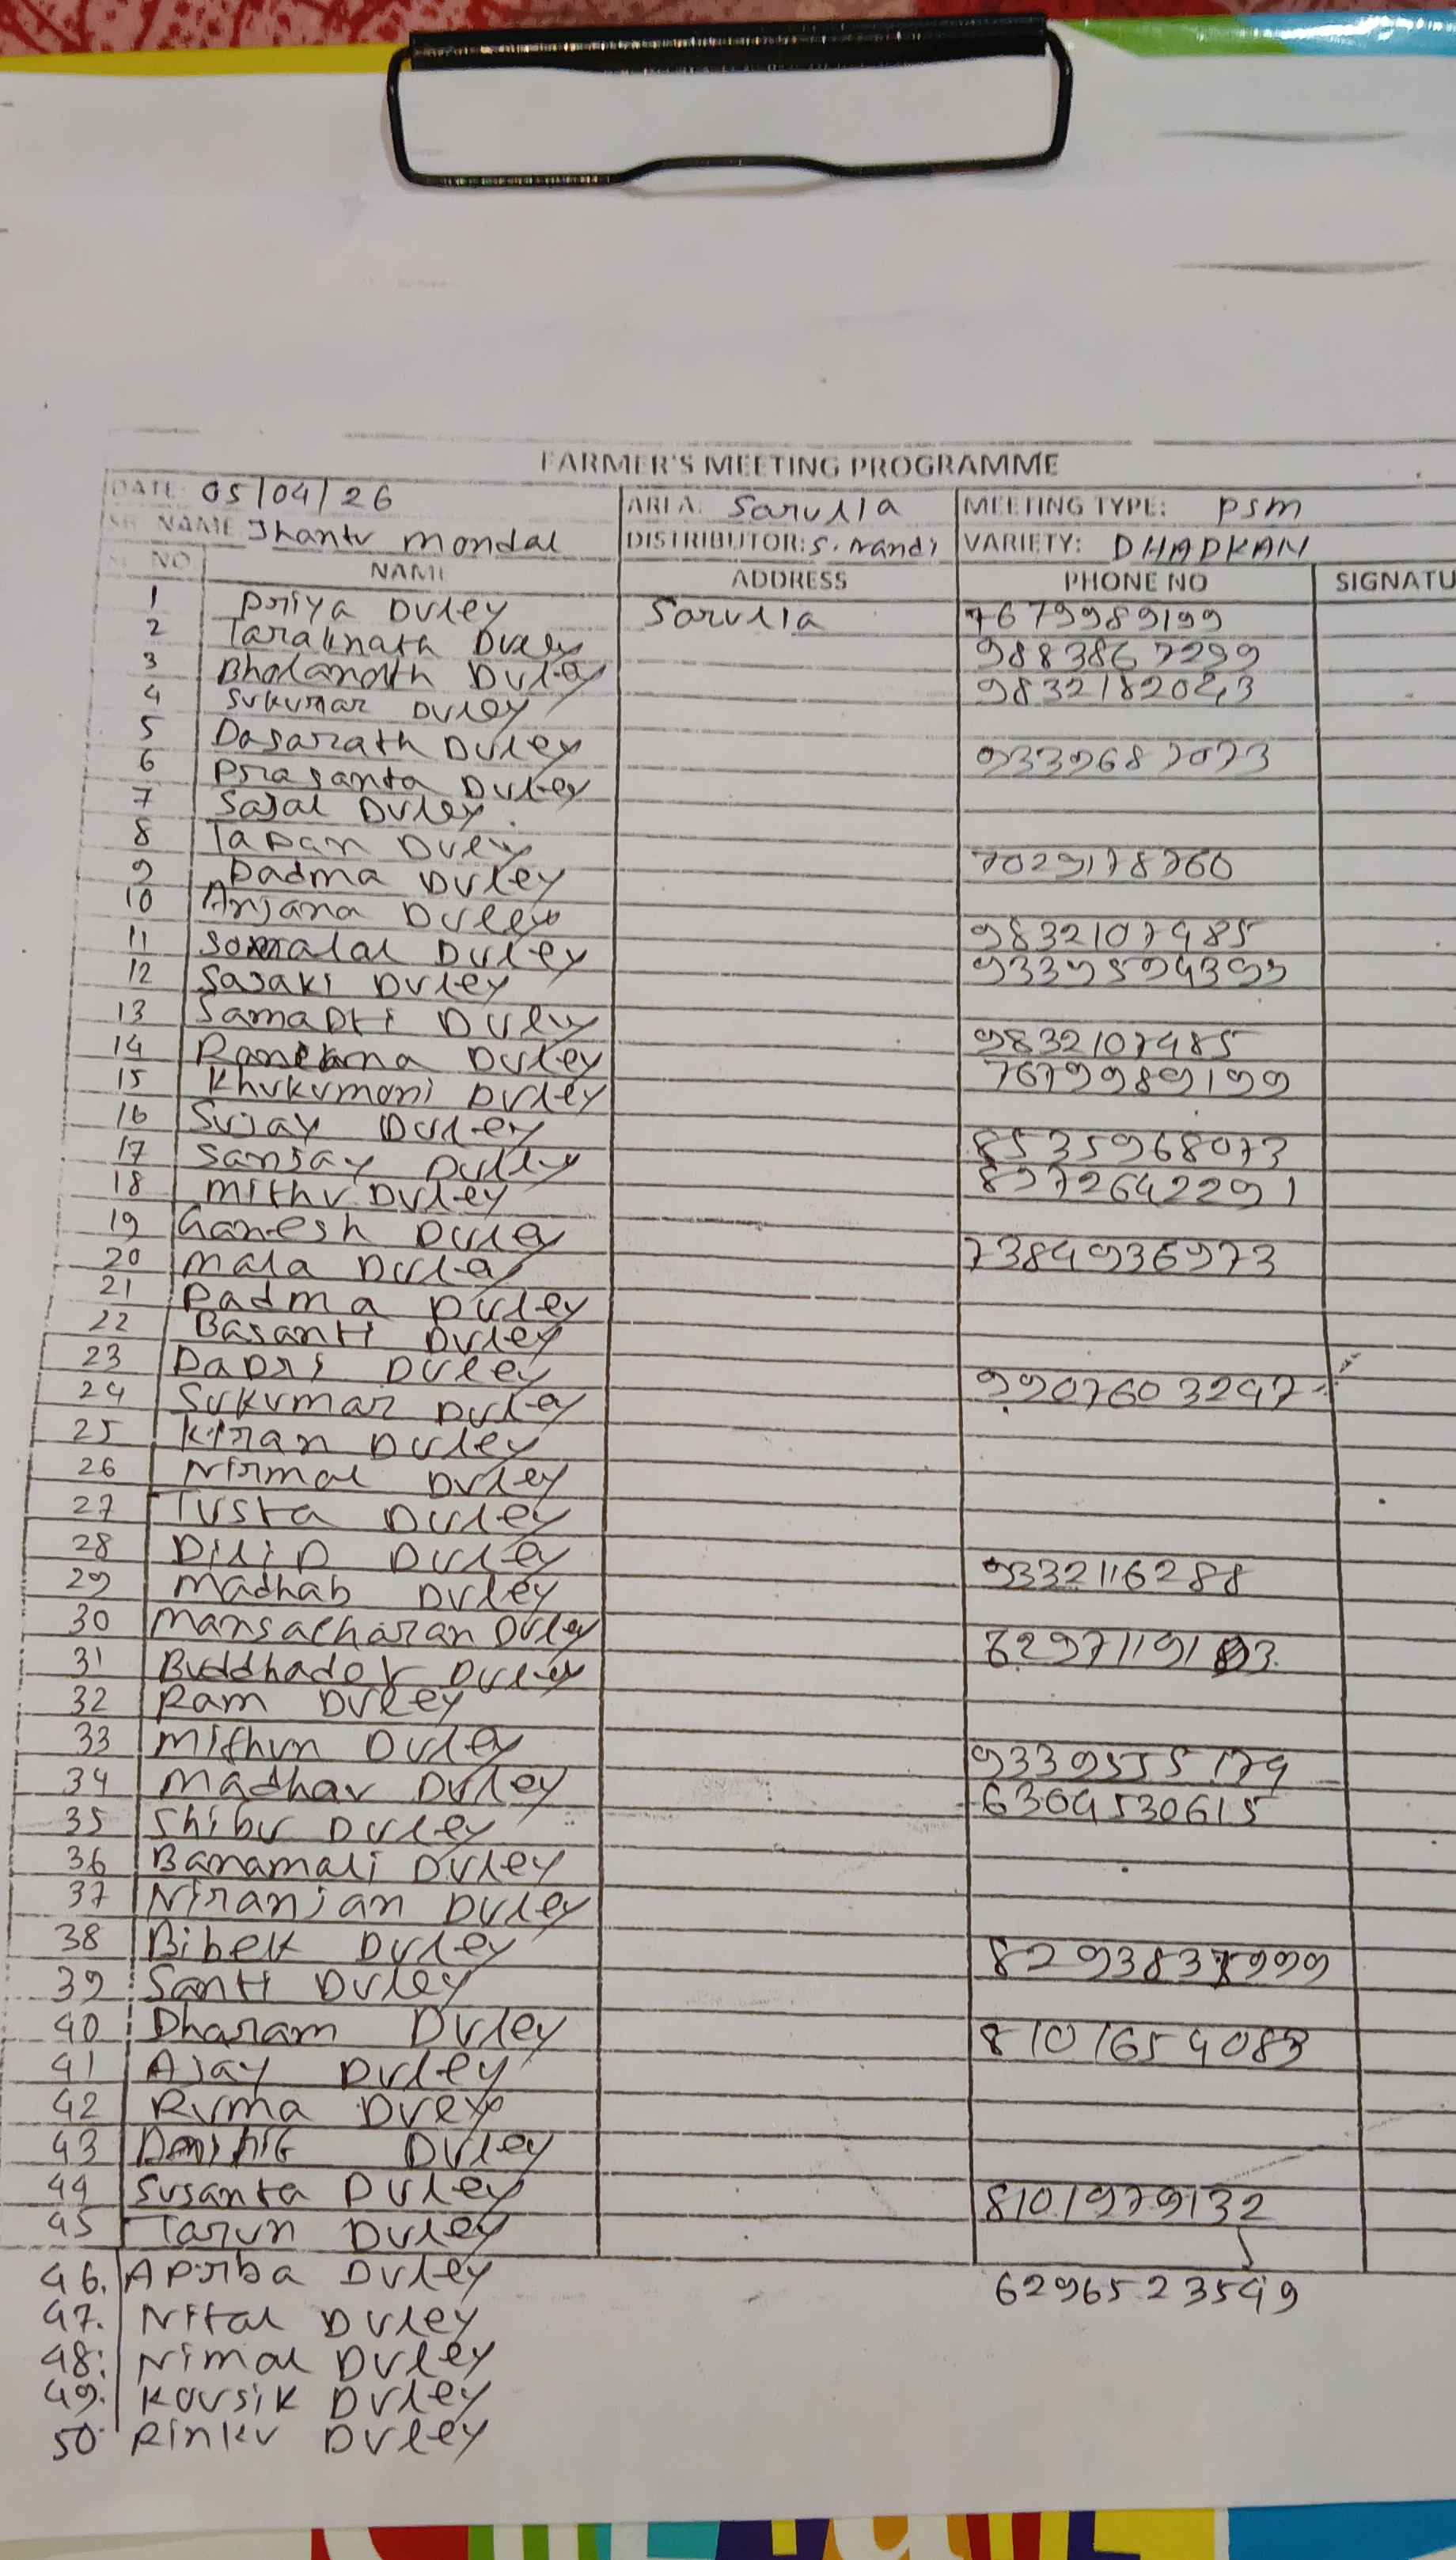 FARMER'S MEETING PROGRAMME
DATE: 05/04/26 AREA: Sarulia MEETING TYPE: PSM
SR NAME Jhantu mondal DISTRIBUTOR: S. Nandi VARIETY: DHADKAN
NO NAME ADDRESS PHONE NO SIGNATU
1 Priya Duley Sarulia 7679989199
2 Taraknath Duley 9883867299
3 Bholanath Duley 9832182043
4 Sukumar Duley
5 Dasarath Duley 9339687073
6 Prasanta Duley
7 Sajal Duley
8 Tapan Duley 7029178760
9 Padma Duley
10 Anjana Duley 9832107485
11 Somalal Duley 9339594399
12 Sajaki Duley
13 Samapti Duley 9832107485
14 Duley 7679989199
15 Khukumoni Duley
16 Sujay Duley 8535968073
17 Sanjay Duley 8372642291
18 Mithu Duley
19 Ganesh Duley 7384936973
20 Mala Duley
21 Padma Duley
22 Basanti Duley
23 Papri Duley 9907603297
24 Sukumar Duley
25 Kiran Duley
26 Nirmal Duley
27 Tusta Duley
28 Dilip Duley 9332116288
29 Madhab Duley
30 Mansacharan Duley
31 Buddhadev Duley
32 Ram Duley
33 Mithun Duley 9339555174
34 Madhav Duley 6304530615
35 Shibu Duley
36 Banamali Duley
37 Niranjan Duley
38 Bibek Duley
39 Santi Duley
40 Dharam Duley 8101654083
41 Ajay Duley
42 Ruma Duley
43 Duley
44 Susanta Duley 8101979132
45 Tarun Duley
46. Aprba Duley 6296523549
47. Nital Duley
48. Nimal Duley
49. Kousik Duley
50. Rinku Duley